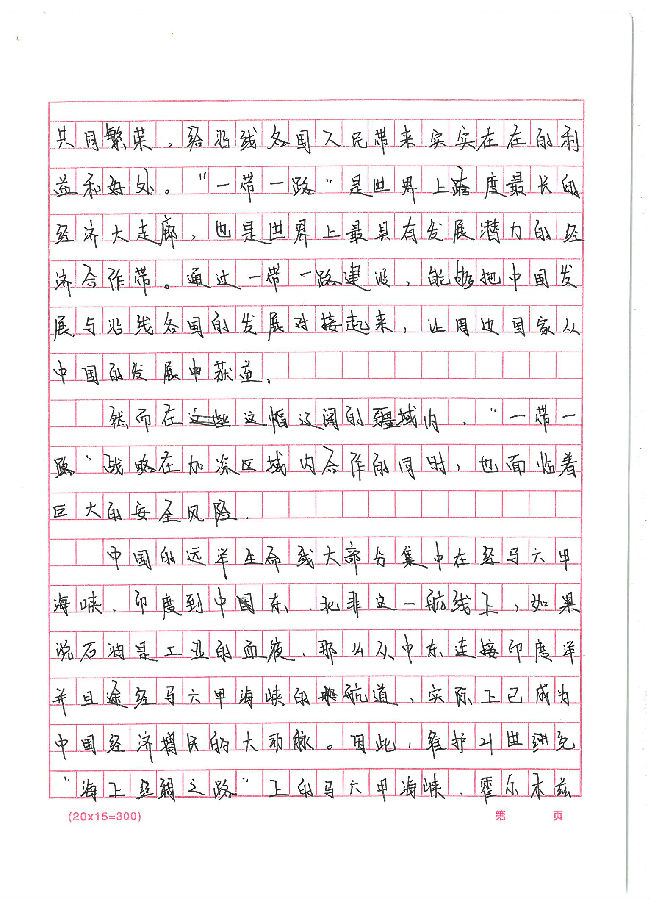 共同繁荣,给沿线各国人民带来实实在在的利
益和好处。“一带一路”是世界上跨度最长的
经济大走廊,也是世界上最具有发展潜力的经
济合作带。通过一带一路建设,能够把中国发
展与沿线各国的发展对接起来,让周边国家从
中国的发展中获益。
然而在这幅辽阔的疆域内,“一带一
路”战略在加深区域内合作的同时,也面临着
巨大的安全风险。
中国的远洋生命线大部分集中在经马六甲
海峡、印度到中国东、北非这一航线上,如果
说石油是工业的血液,那么从中东连接印度洋
并且途经马六甲海峡的航道,实际上已成为
中国经济增长的大动脉。因此,维护21世纪
“海上丝绸之路”上的马六甲海峡、霍尔木兹
(20x15=300) 第 页